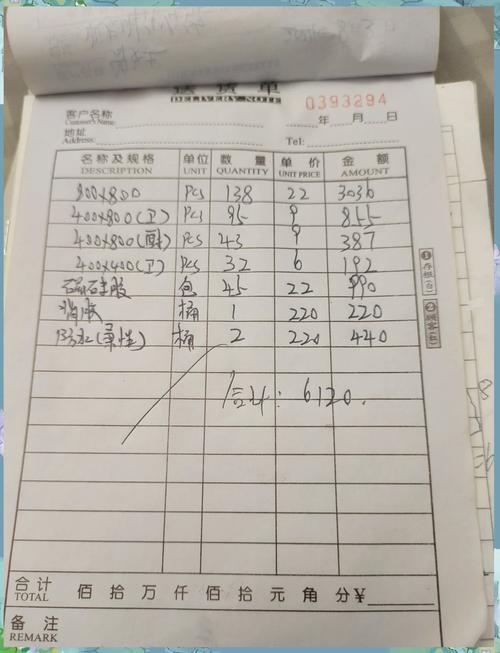 送货单
DELIVERY NOTE
0393294
客户名称
Customer's Name:
年 月 日
地址
Address:
Tel:
名称及规格 单位 数量 单价 金额
DESCRIPTION UNIT QUANTITY UNIT PRICE AMOUNT
800x800 Pcs 138 22 3036
400x800(卫) Pcs 95 9 855
400x800(厨) Pcs 43 9 387
400x400(卫) Pcs 32 6 192
包 45 22 990
桶 1 220 220
防水(柔性) 桶 2 220 440
合计: 6120.
①存根(白)
②顾客(红)
合计 佰拾万仟佰拾元角分¥
TOTAL
备注
REMARK